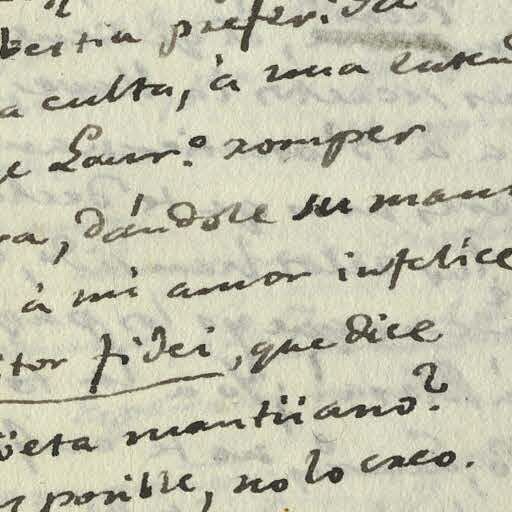 bestia preferida
a culta, à una
e Laur.º romper
ra, dándole su man
à mi amor infelice
tor fidei, que dice
öeta mantüano?
posible, no lo creo.